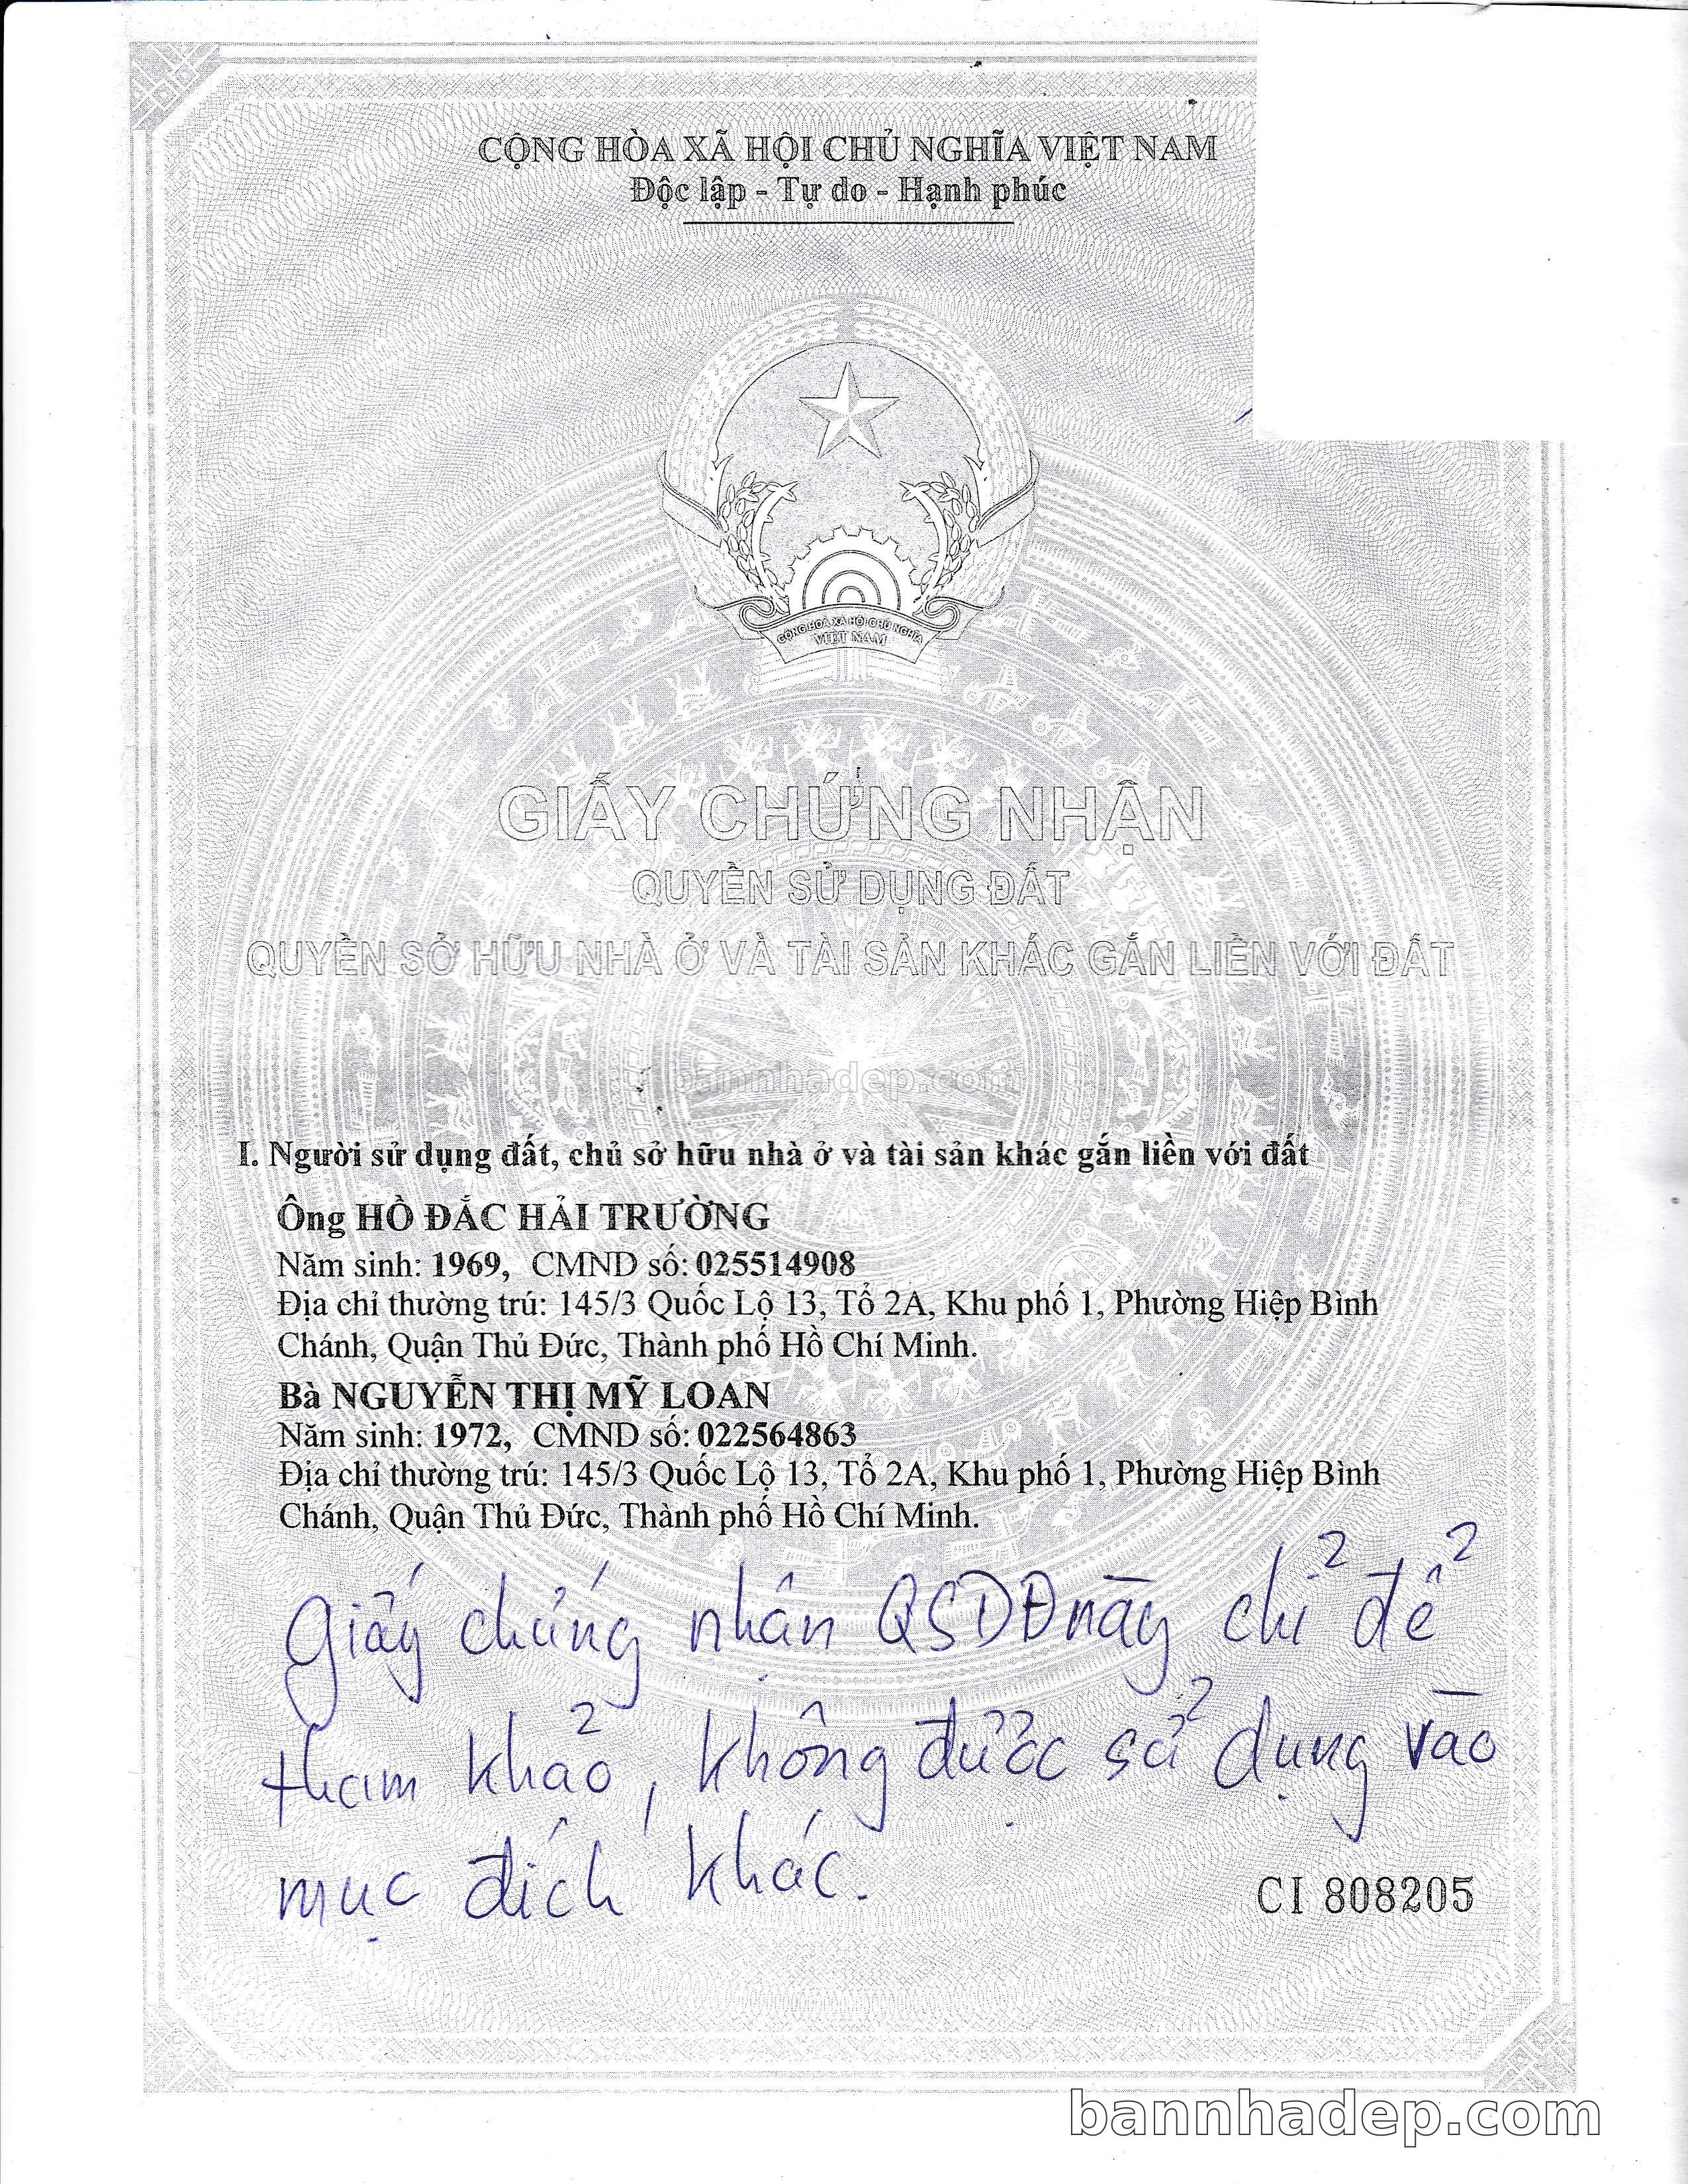 CỘNG HÒA XÃ HỘI CHỦ NGHĨA VIỆT NAM
Độc lập - Tự do - Hạnh phúc
CỘNG HOÀ XÃ HỘI CHỦ NGHĨA
VIỆT NAM
GIẤY CHỨNG NHẬN
QUYỀN SỬ DỤNG ĐẤT
QUYỀN SỞ HỮU NHÀ Ở VÀ TÀI SẢN KHÁC GẮN LIỀN VỚI ĐẤT
bannhadep.com
I. Người sử dụng đất, chủ sở hữu nhà ở và tài sản khác gắn liền với đất
Ông HỒ ĐẮC HẢI TRƯỜNG
Năm sinh: 1969, CMND số: 025514908
Địa chỉ thường trú: 145/3 Quốc Lộ 13, Tổ 2A, Khu phố 1, Phường Hiệp Bình
Chánh, Quận Thủ Đức, Thành phố Hồ Chí Minh.
Bà NGUYỄN THỊ MỸ LOAN
Năm sinh: 1972, CMND số: 022564863
Địa chỉ thường trú: 145/3 Quốc Lộ 13, Tổ 2A, Khu phố 1, Phường Hiệp Bình
Chánh, Quận Thủ Đức, Thành phố Hồ Chí Minh.
Giấy chứng nhận QSDĐ này chỉ để
tham khảo, không được sử dụng vào
mục đích khác.
CI 808205
bannhadep.com